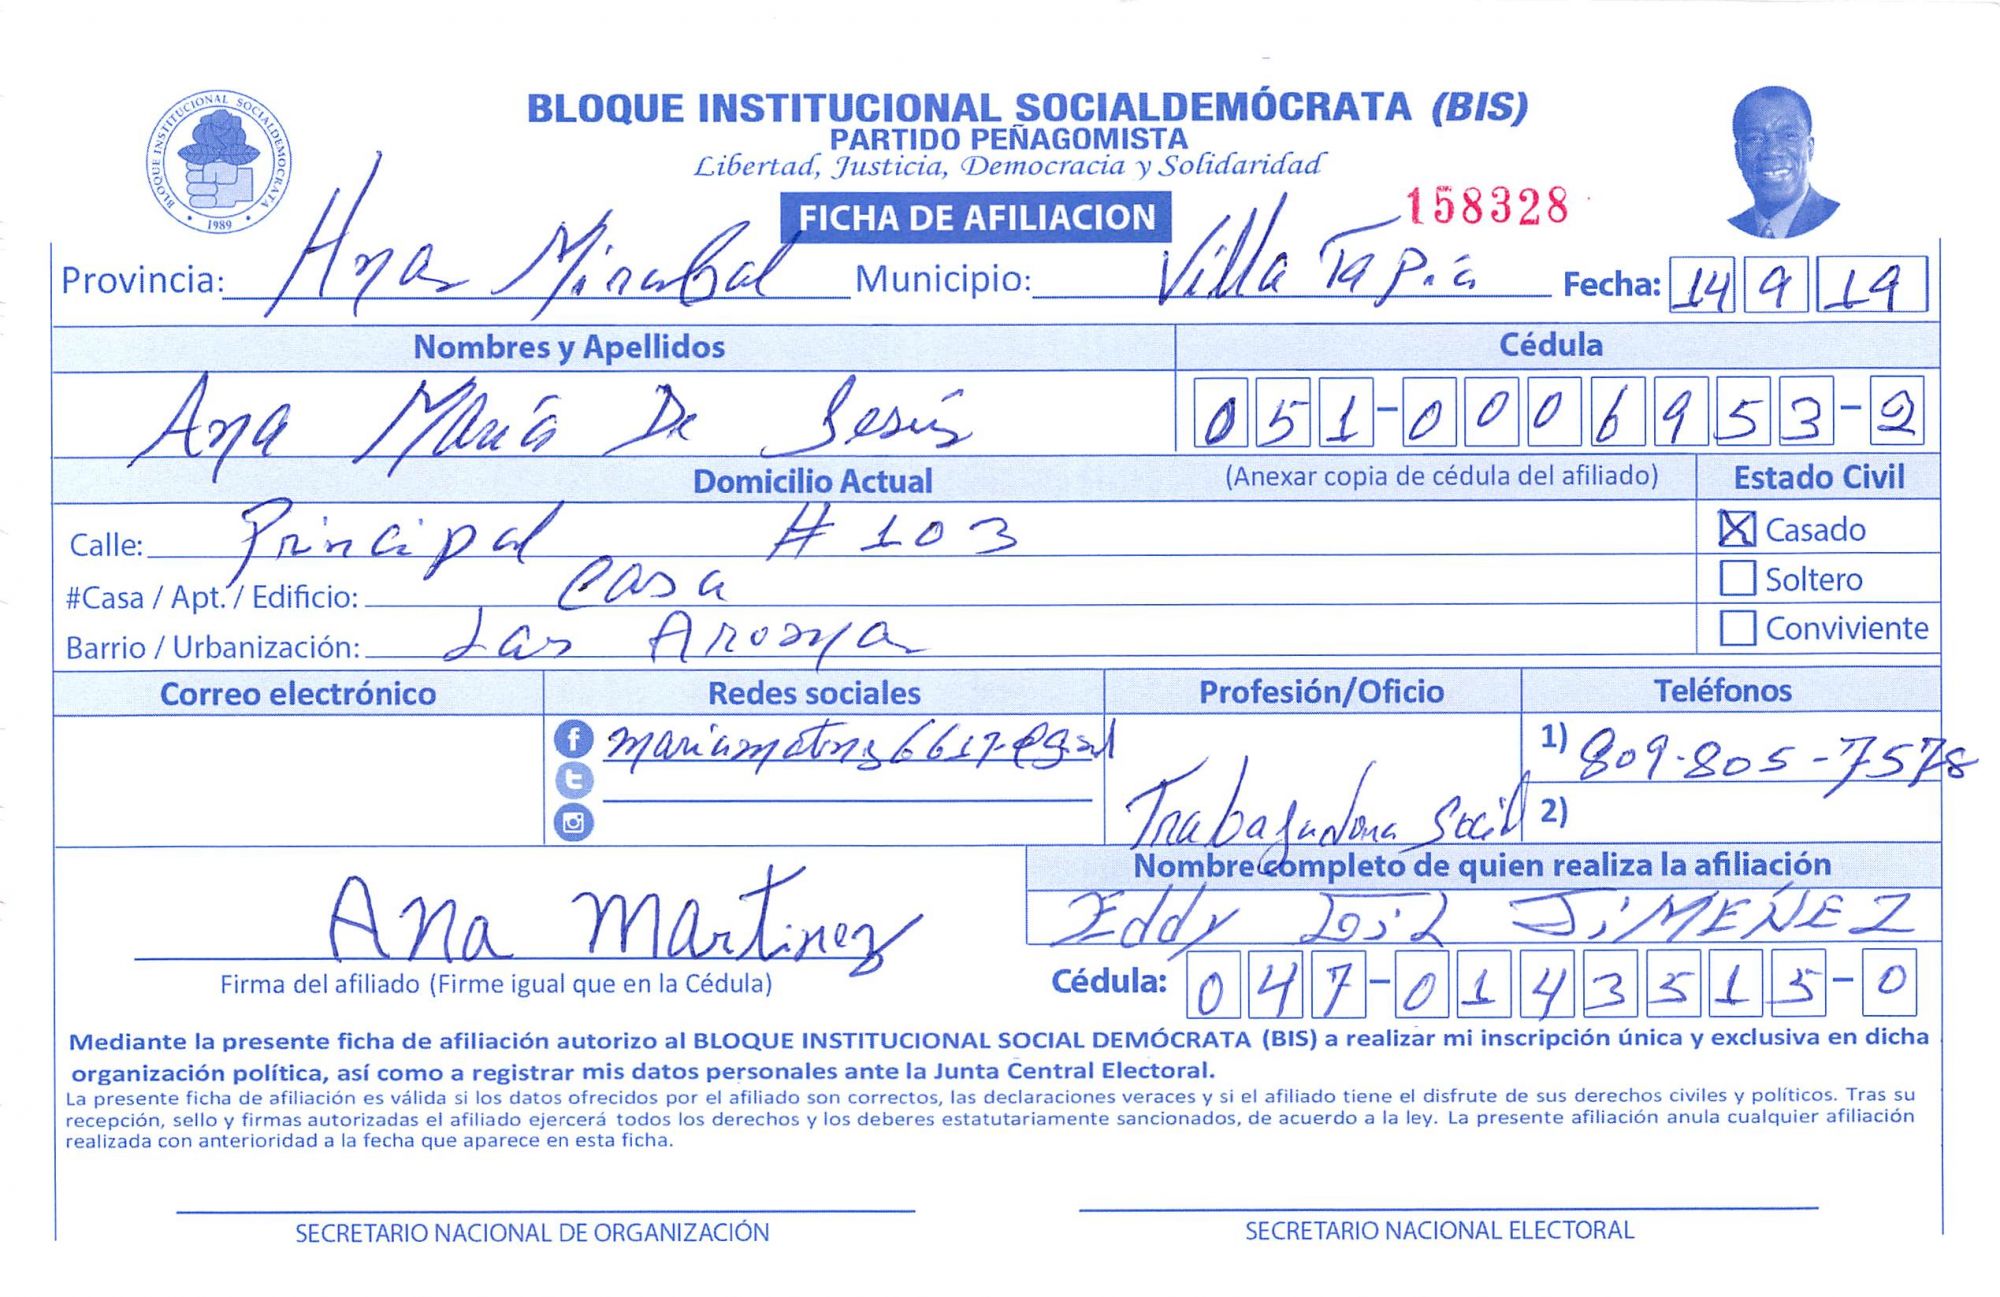 BLOQUE INSTITUCIONAL SOCIALDEMÓCRATA (BIS)
PARTIDO PEÑAGOMISTA
Libertad, Justicia, Democracia y Solidaridad
BLOQUE INSTITUCIONAL SOCIALDEMOCRATA
1989
FICHA DE AFILIACION 158328
Provincia: Hnas Mirabal Municipio: Villa Tapia Fecha: 14 9 19
Nombres y Apellidos Cédula
Ana María De Jesús 051-0006953-2
Domicilio Actual (Anexar copia de cédula del afiliado) Estado Civil
Calle: Principal # 103 X Casado
#Casa / Apt. / Edificio: Casa Soltero
Barrio / Urbanización: Las Conviviente
Correo electrónico Redes sociales Profesión/Oficio Teléfonos
1) 809-805-7578
Trabajadora Social 2)
Nombre completo de quien realiza la afiliación
Ana Martinez Eddy JiMEÑEZ
Firma del afiliado (Firme igual que en la Cédula) Cédula: 047-0143515-0
Mediante la presente ficha de afiliación autorizo al BLOQUE INSTITUCIONAL SOCIAL DEMÓCRATA (BIS) a realizar mi inscripción única y exclusiva en dicha
organización política, así como a registrar mis datos personales ante la Junta Central Electoral.
La presente ficha de afiliación es válida si los datos ofrecidos por el afiliado son correctos, las declaraciones veraces y si el afiliado tiene el disfrute de sus derechos civiles y políticos. Tras su
recepción, sello y firmas autorizadas el afiliado ejercerá todos los derechos y los deberes estatutariamente sancionados, de acuerdo a la ley. La presente afiliación anula cualquier afiliación
realizada con anterioridad a la fecha que aparece en esta ficha.
SECRETARIO NACIONAL DE ORGANIZACIÓN SECRETARIO NACIONAL ELECTORAL